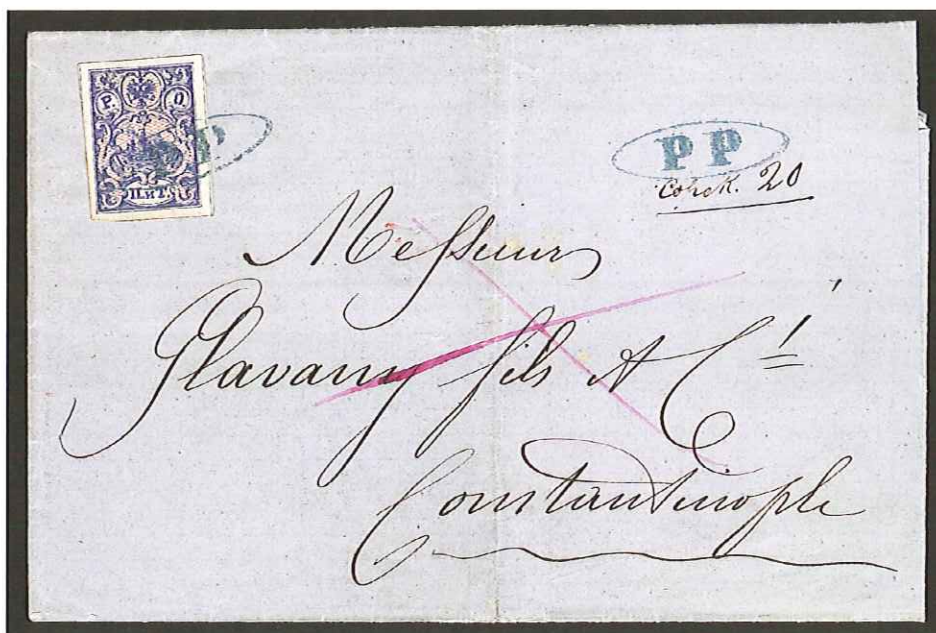 Р. О.
ПИТ.
PP
PP
Conck. 20
Messieurs
Glavany fils & C!
Constantinople